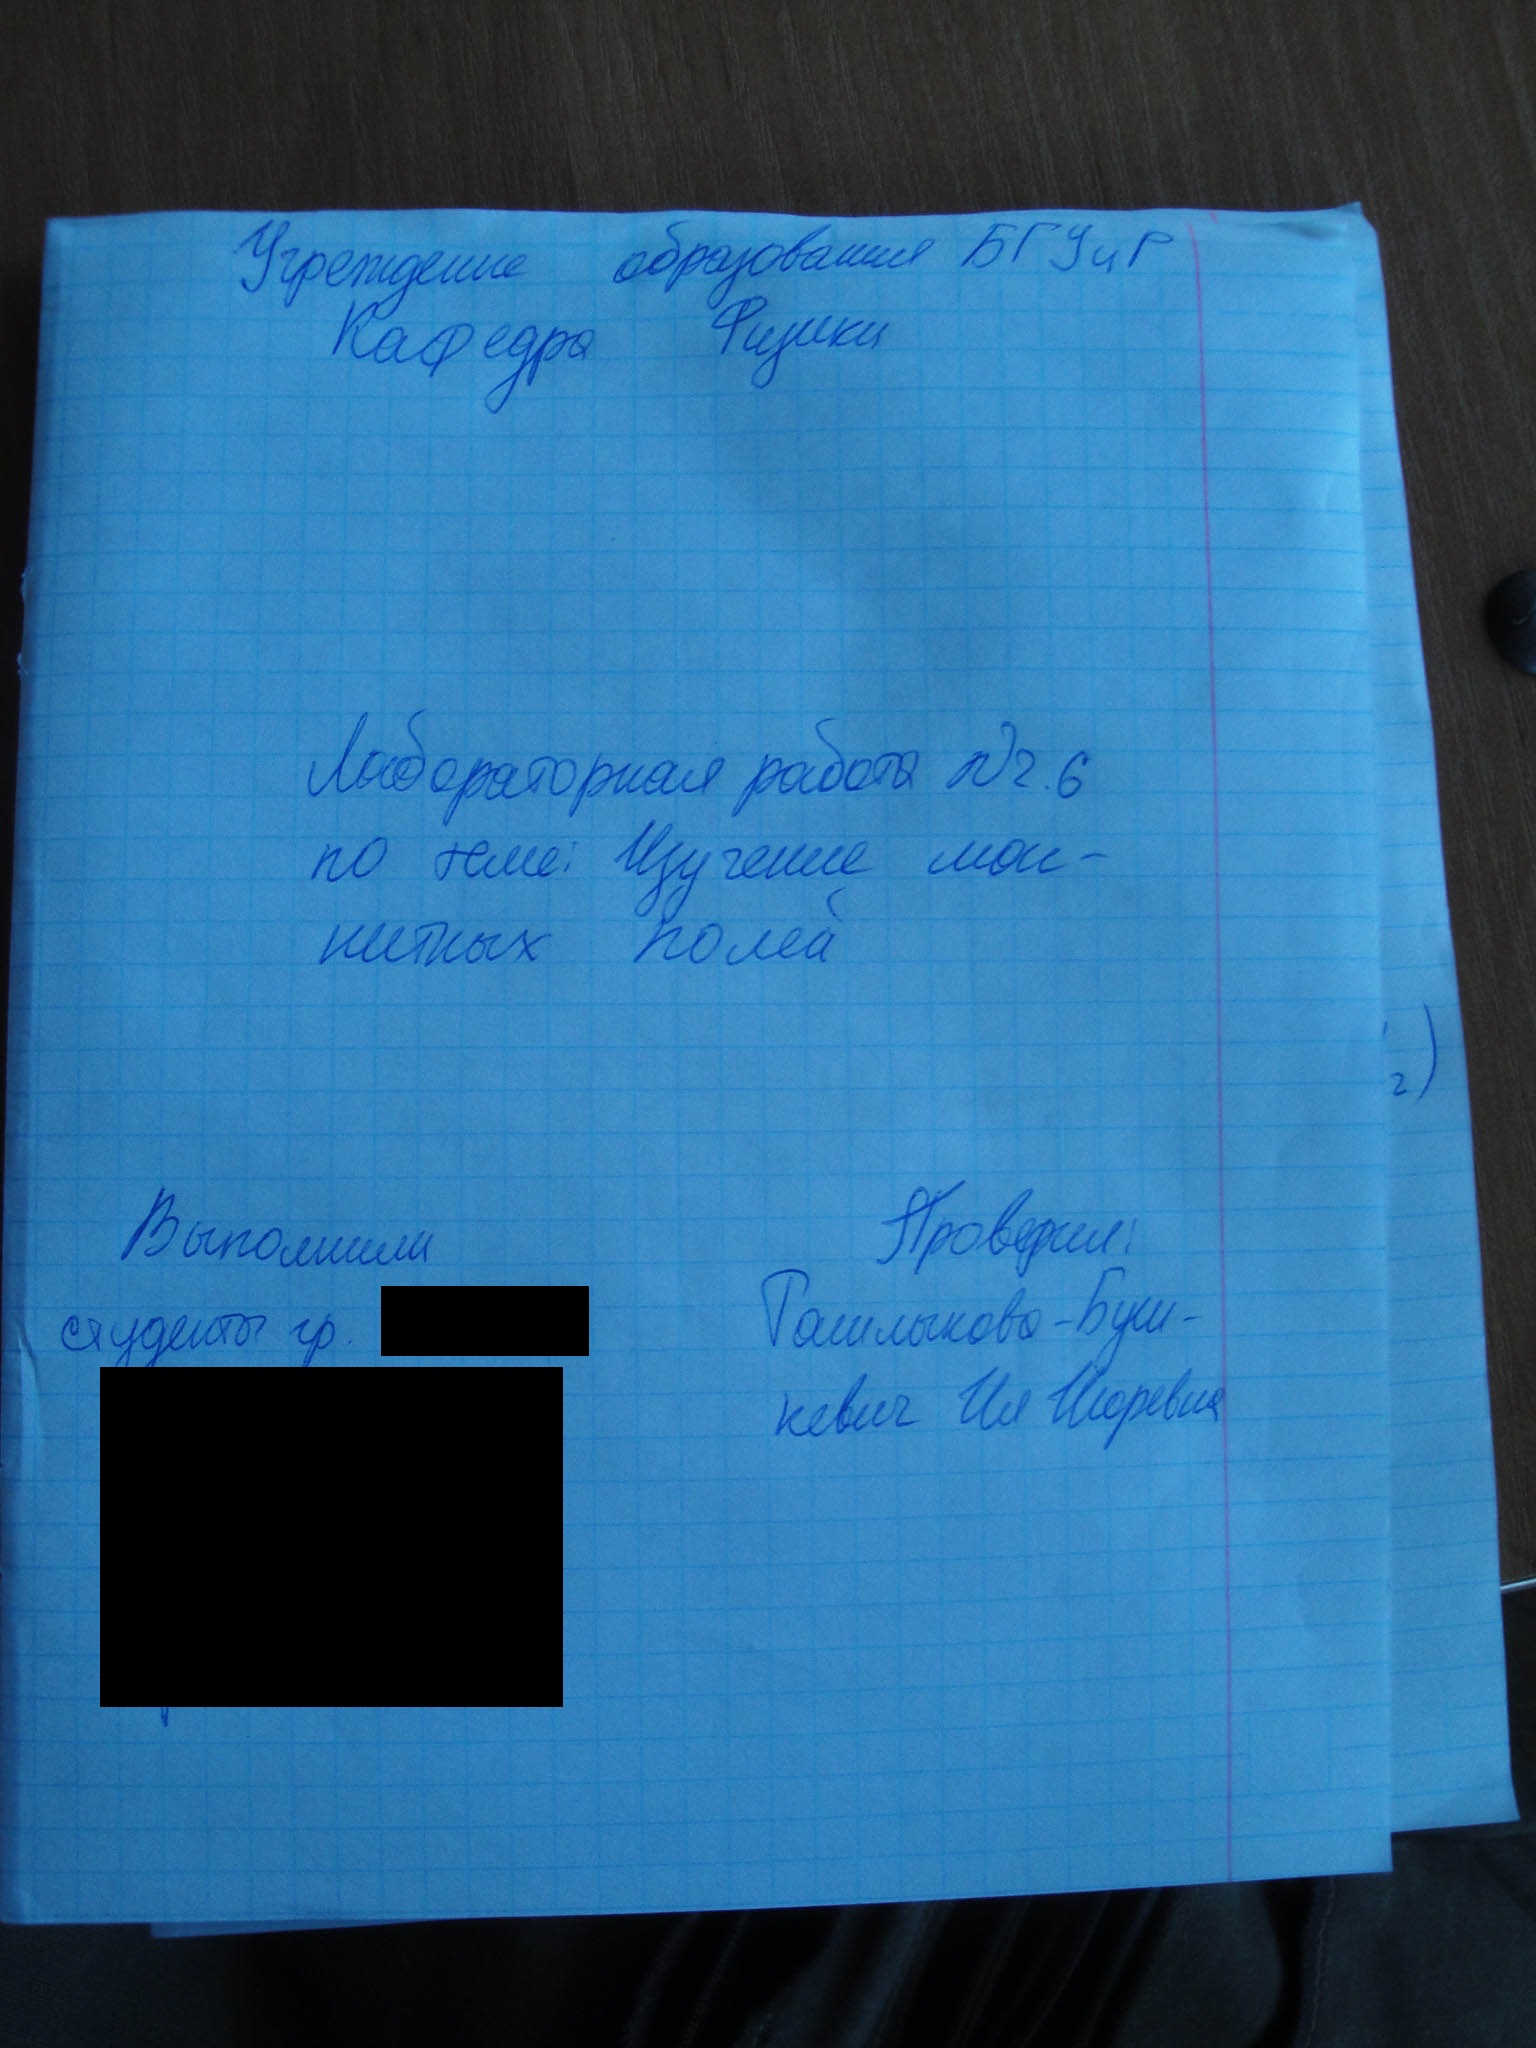 Учреждение образования БГУиР
Кафедра Физики
Лабораторная работа №2.6
по теме: Изучение маг-
нитных полей
Выполнили
студенты гр.
Проверил:
Ташлыкова-Буш-
кевич Ия Игоревна
2)